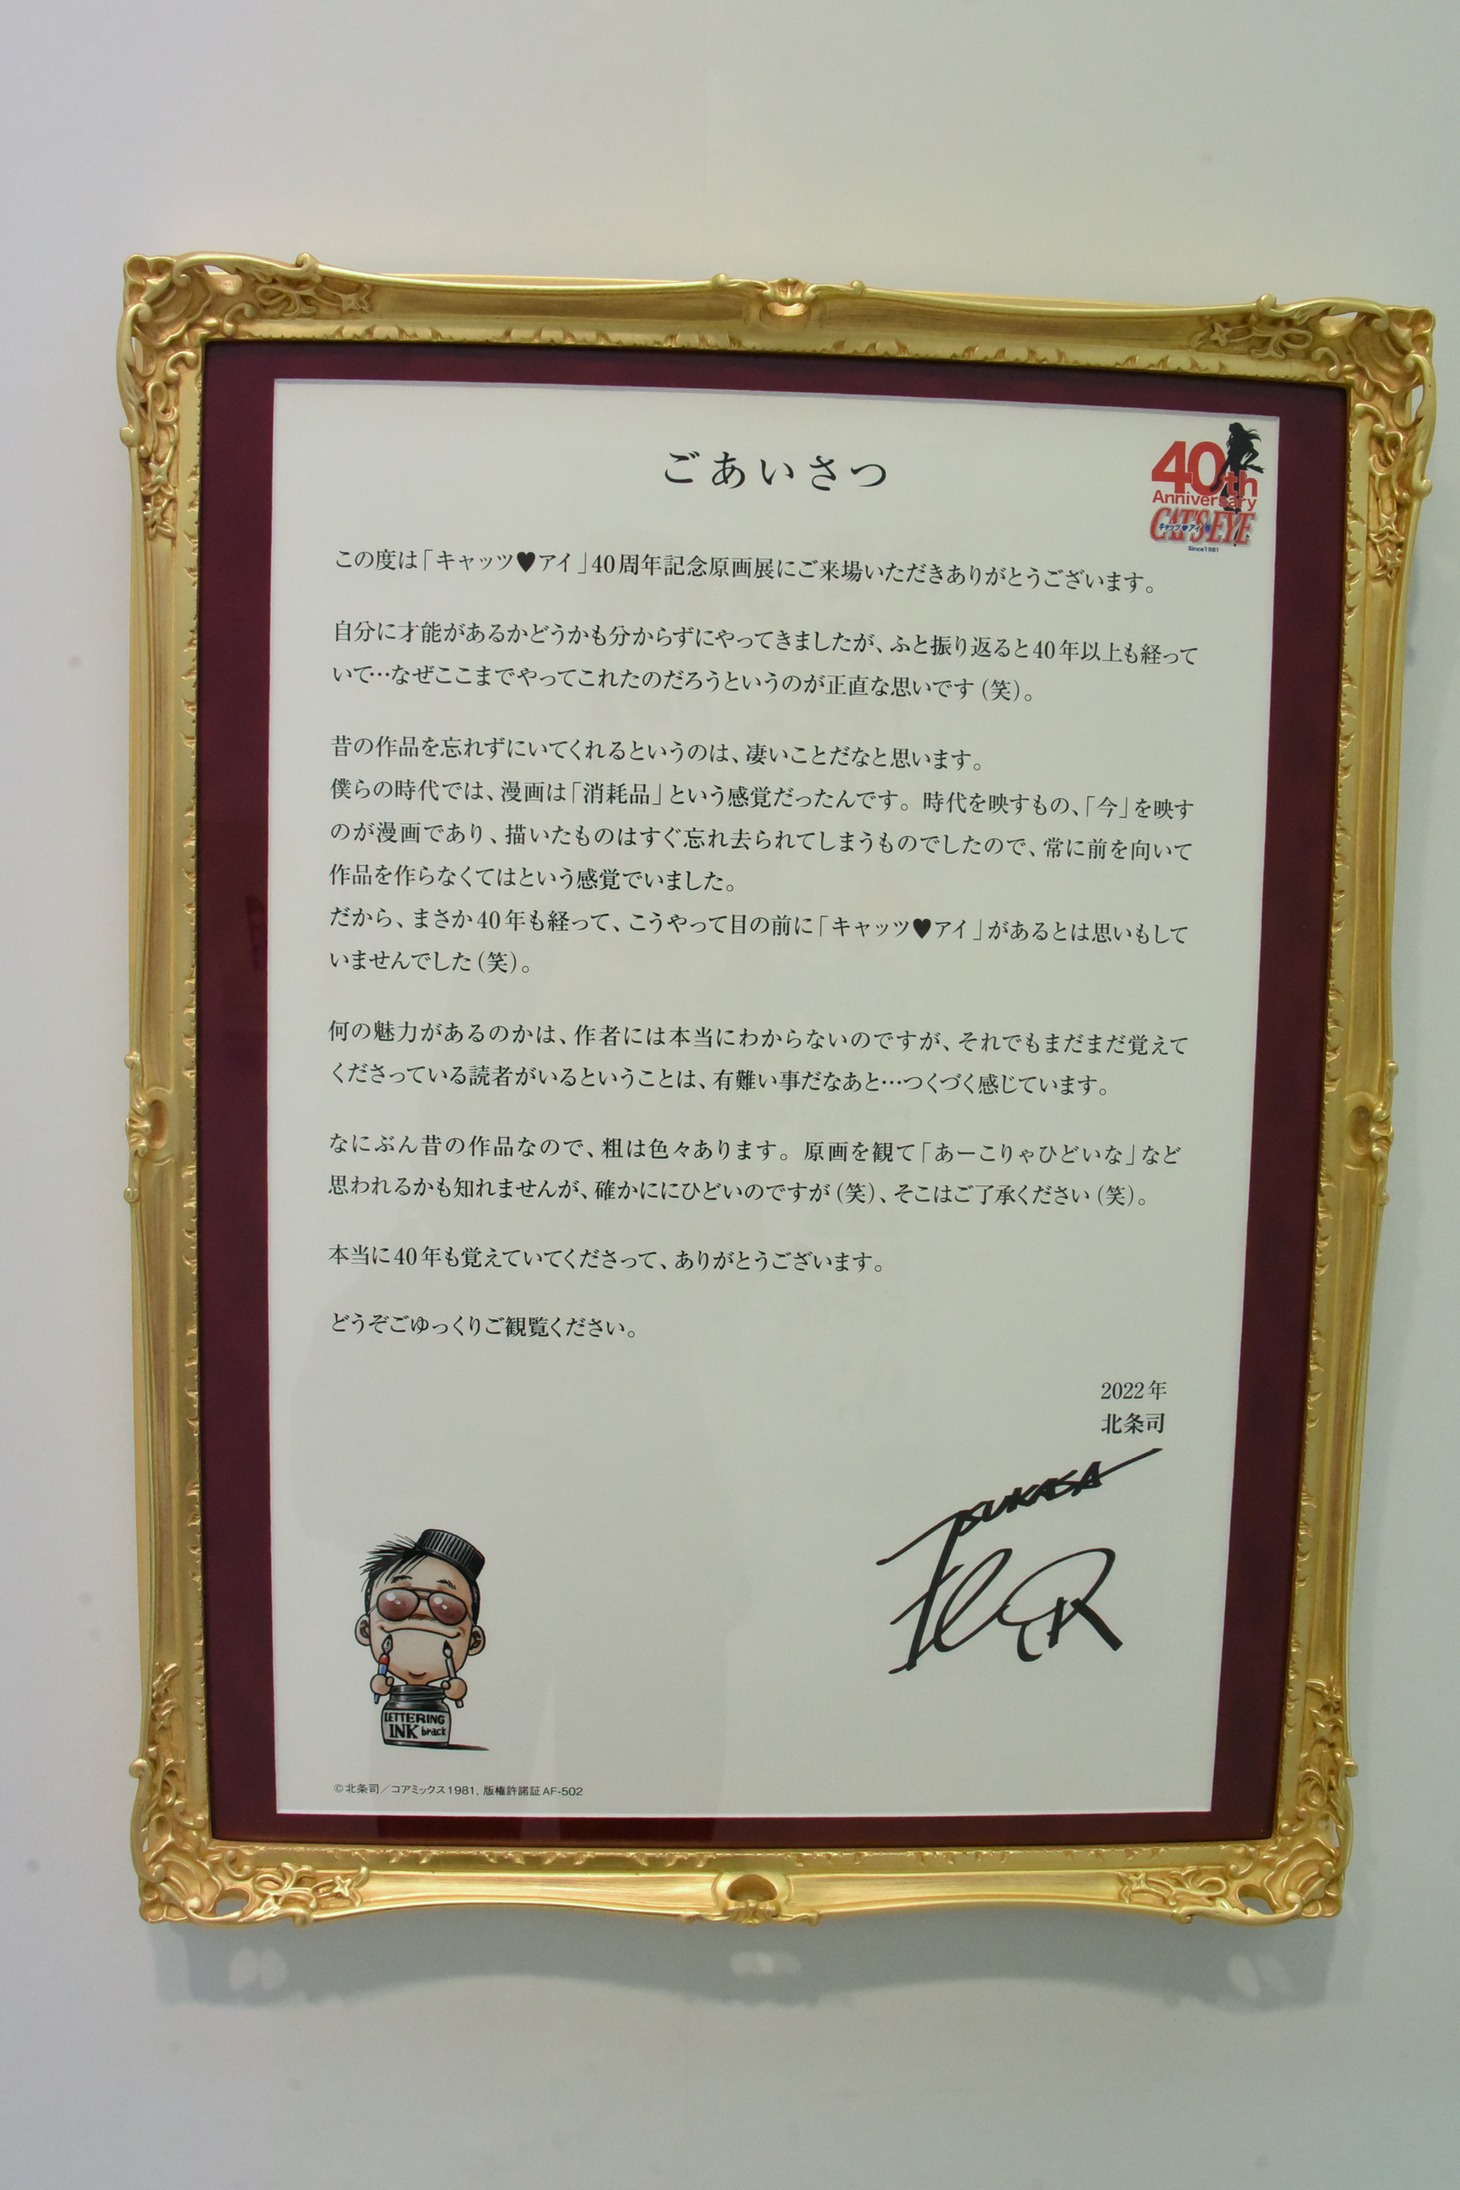 ごあいさつ
40th
Anniversary
CAT'S EYE
キャッツ♥アイ
Since1981
この度は「キャッツ♥アイ」40周年記念原画展にご来場いただきありがとうございます。
自分に才能があるかどうかも分からずにやってきましたが、ふと振り返ると40年以上も経って
いて…なぜここまでやってこれたのだろうというのが正直な思いです（笑）。
昔の作品を忘れずにいてくれるというのは、凄いことだなと思います。
僕らの時代では、漫画は「消耗品」という感覚だったんです。時代を映すもの、「今」を映す
のが漫画であり、描いたものはすぐ忘れ去られてしまうものでしたので、常に前を向いて
作品を作らなくてはという感覚でいました。
だから、まさか40年も経って、こうやって目の前に「キャッツ♥アイ」があるとは思いもして
いませんでした（笑）。
何の魅力があるのかは、作者には本当にわからないのですが、それでもまだまだ覚えて
くださっている読者がいるということは、有難い事だなあと…つくづく感じています。
なにぶん昔の作品なので、粗は色々あります。原画を観て「あーこりゃひどいな」など
思われるかも知れませんが、確かににひどいのですが（笑）、そこはご了承ください（笑）。
本当に40年も覚えていてくださって、ありがとうございます。
どうぞごゆっくりご観覧ください。
2022年
北条司
TSUKASA
LETTERING
INK brack
©北条司／コアミックス1981, 版権許諾証AF-502